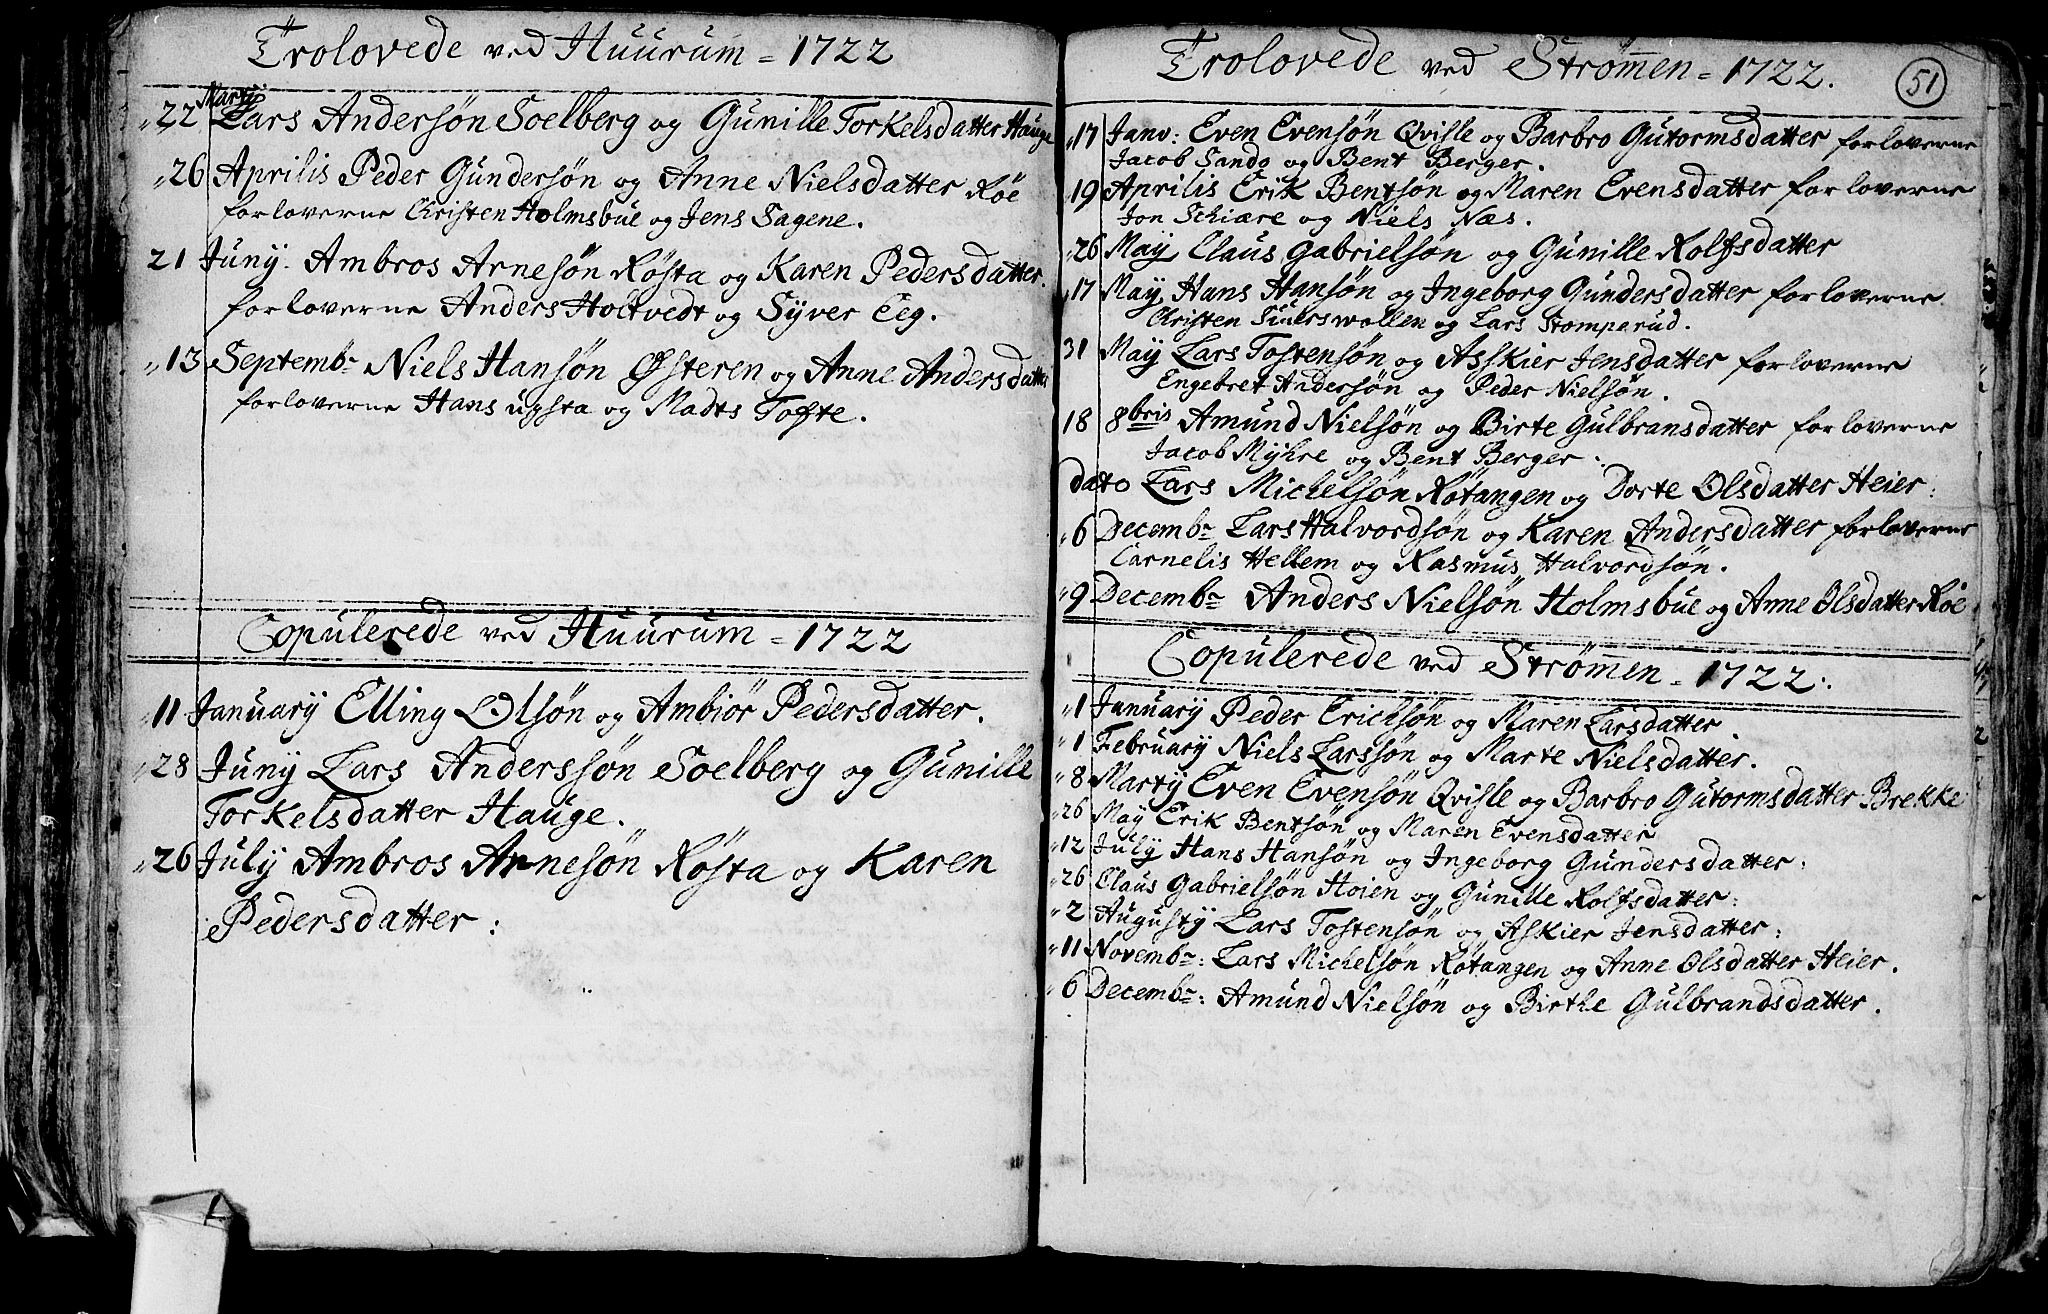 Trolovede ved Huurum = 1722
Marty
22 Lars Andersøn Soelberg og Gunille Torkelsdatter Hauge
26 Aprilis Peder Gundersøn og Anne Nielsdatter Röe
forloverne Christen Holmsbue og Jens Sagene.
21 Juny. Ambros Arnesøn Røsta og Karen Pedersdatter.
forloverne Anders Holtvedt og Syver Eeg.
13 Septembr Niels Hansøn Østeren og Anne Andersdatter
forloverne Hans upsta og Madts Tofte.
Copulerede ved Huurum = 1722
11 January Elling Olsøn og Ambiør Pedersdatter.
28 Juny Lars Anderssøn Soelberg og Gunille
Torkelsdatter Hauge.
26 July Ambros Arnesøn Røsta og Karen
Pedersdatter:
Trolovede ved Strømen = 1722.
51
17 Janv: Even Evensøn Qvisle og Barbro Gutormsdatter forloverne
Jacob Sando og Bent Berger.
19 Aprilis Erik Bentsøn og Maren Evensdatter forloverne
Jon Schiære og Niels Næs.
26 May Claus Gabrielsøn og Gunille Rolfsdatter
17 May Hans Hansøn og Ingeborg Gundersdatter forloverne
Christen og Lars Stomperud.
31 May Lars Tostensøn og Asskier Jensdatter forloverne
Engebret Andersøn og Peder Nielsøn.
18 8bris Amund Nielsøn og Birte Gulbransdatter forloverne
Jacob Myhre og Bent Berger:
dato Lars Michelsøn Røtangen og Dorte Olsdatter Heier:
6 Decembr Lars Halvordsøn og Karen Andersdatter forloverne
Carnelis Hellem og Rasmus Halvordsøn.
9 Decembr Anders Nielsøn Holmsbue og Anne Olsdatter Röe
Copulerede ved Strømen = 1722.
1 January Peder Erichsøn og Maren Larsdatter.
1 February Niels Larssøn og Marte Nielsdatter.
8 Marty Even Evensøn Qvisle og Barbro Gutormsdatter Brekke
26 May Erik Bentsøn og Maren Evensdatter
12 July Hans Hansøn og Ingeborg Gundersdatter:
26 Claus Gabrielsøn Hoien og Gunille Rolfsdatter:
2 Augusty Lars Tostensøn og Askier Jensdatter:
11 Novembr: Lars Michelsøn Røtangen og Anne Olsdatter Heier.
6 Decembr: Amund Nielsøn og Birthe Gulbrandsdatter.